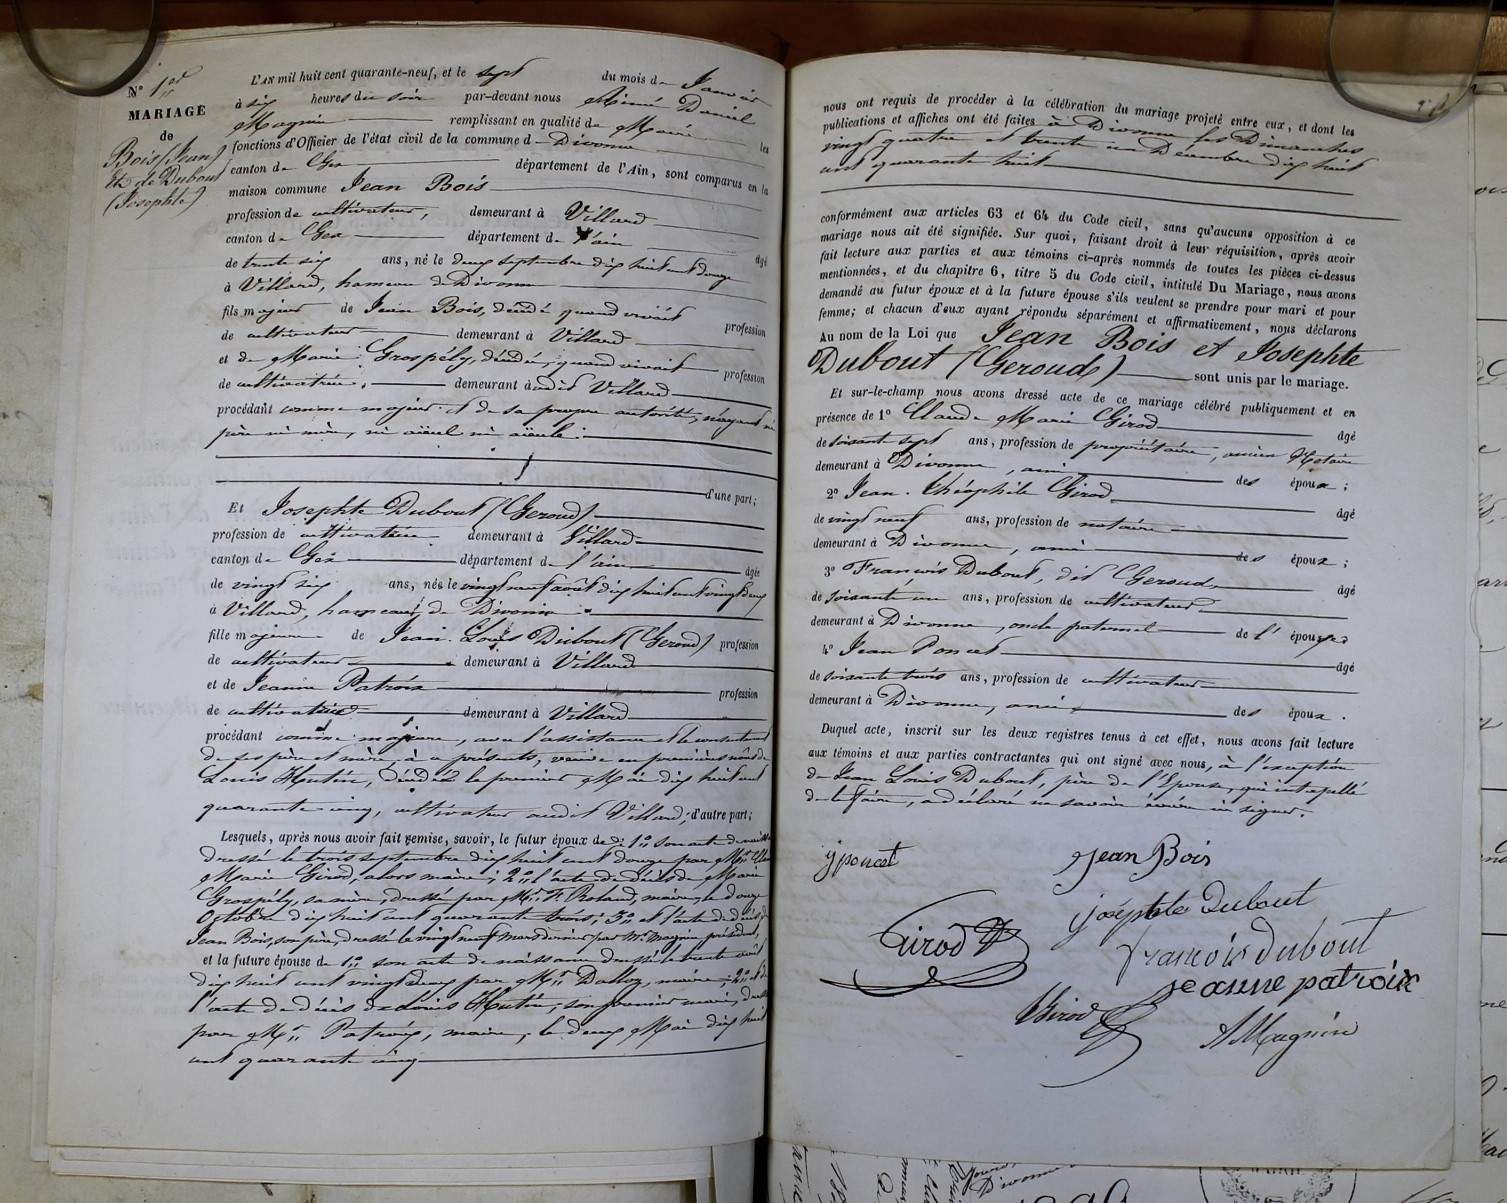 N° 1er
MARIAGE
de
Bois (Jean)
et de Dubout
(Josephte)
L'AN mil huit cent quarante-neuf, et le sept du mois de Janvier
à six heures du soir par-devant nous Aimé Daniel
Magnin remplissant en qualité de Maire les
fonctions d'Officier de l'état civil de la commune d Divonne
canton de Gex département de l'Ain, sont comparus en la
maison commune Jean Bois
profession de cultivateur, demeurant à Villard
canton de Gex département de l'ain
âgé
de trente six ans, né le deux septembre dix huit cent douze
à Villard, hameau de Divonne
fils majeur de Jean Bois, décédé quand vivait profession
de cultivateur demeurant à Villard
et de Marie Grospély, décédée, quand vivait profession
de cultivatrice, demeurant audit Villard
procédant comme majeur et de sa propre autorité, n'ayant ni
père ni mère, ni aïeul ni aïeule.
d'une part;
Et Josephte Dubout (Geroud)
profession de cultivatrice demeurant à Villard
canton de Gex département de l'ain âgée
de vingt six ans, née le vingt neuf août dix huit cent vingt deux
à Villard, hameau de Divonne
fille majeure de Jean Louis Dubout (Geroud) profession
de cultivateur demeurant à Villard
et de Jeanne Patroix profession
de cultivatrice demeurant à Villard
procédant comme majeure, avec l'assistance et le consentement
de ses père et mère, à ce présents, veuve en premières nôces de
Louis Hutin, décédé le premier Mai dix huit cent
quarante cinq, cultivateur audit Villard; d'autre part;
Lesquels, après nous avoir fait remise, savoir, le futur époux de: 1° son acte de naissance
dressé le trois septembre dix huit cent douze par Mr. Claude
Marie Girod, alors maire; 2° l'acte de décès de Marie
Grospély, sa mère, dressé par Mr. F. Roland, maire, le douze
Octobre dix huit cent quarante trois; 3° et l'acte de décès de
Jean Bois, son père, dressé le vingt neuf Mars dernier par Mr. Magnin président,
et la future épouse de 1° son acte de naissance dressé le trente août
dix huit cent vingt deux par Mr. Dalloz, maire; 2° et de
l'acte de décès de Louis Hutin, son premier mari, dressé
par Mr. Patroix, maire, le deux Mai dix huit
cent quarante cinq
nous ont requis de procéder à la célébration du mariage projeté entre eux, et dont les
publications et affiches ont été faites à Divonne les Dimanches
vingt quatre et trente un Décembre dix huit
cent quarante huit
conformément aux articles 63 et 64 du Code civil, sans qu'aucune opposition à ce
mariage nous ait été signifiée. Sur quoi, faisant droit à leur réquisition, après avoir
fait lecture aux parties et aux témoins ci-après nommés de toutes les pièces ci-dessus
mentionnées, et du chapitre 6, titre 5 du Code civil, intitulé Du Mariage, nous avons
demandé au futur époux et à la future épouse s'ils veulent se prendre pour mari et pour
femme; et chacun d'eux ayant répondu séparément et affirmativement, nous déclarons
Au nom de la Loi que Jean Bois et Josephte
Dubout (Geroud) sont unis par le mariage.
Et sur-le-champ nous avons dressé acte de ce mariage célébré publiquement et en
présence de 1° Claude Marie Girod âgé
de soixante sept ans, profession de propriétaire, ancien Notaire
demeurant à Divonne, ami des époux;
2° Jean Théophile Girod âgé
de vingt neuf ans, profession de notaire
demeurant à Divonne, ami des époux;
3° François Dubout, dit Geroud, âgé
de soixante un ans, profession de cultivateur
demeurant à Divonne, oncle paternel de l'épouse;
4° Jean Poncet âgé
de soixante trois ans, profession de cultivateur
demeurant à Divonne, ami des époux.
Duquel acte, inscrit sur les deux registres tenus à cet effet, nous avons fait lecture
aux témoins et aux parties contractantes qui ont signé avec nous, à l'exception
de Jean Louis Dubout, père de l'Epouse, qui interpellé
de le faire, a déclaré ne savoir écrire ni signer.
j poncet Jean Bois
josephte Dubout
Girod
françois Dubout
jeanne patroix
Girod
A Magnin